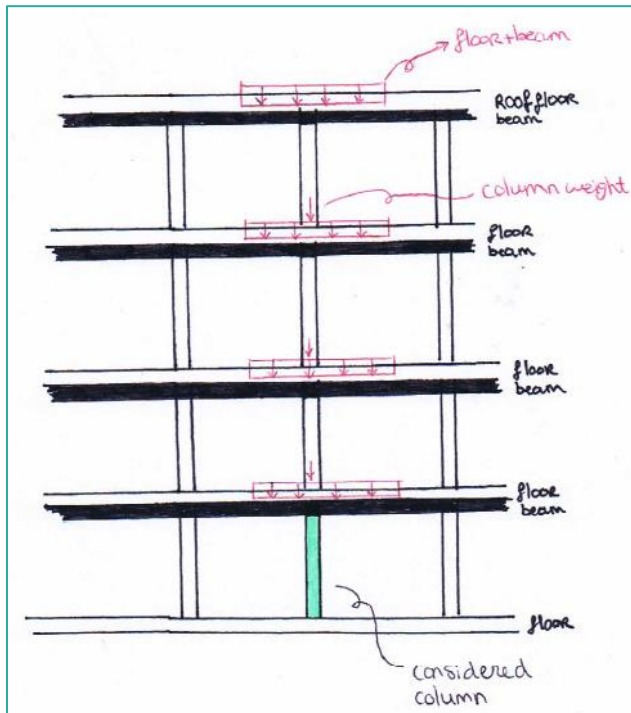 floor+beam
Roof floor
beam
column weight
floor
beam
floor
beam
floor
beam
floor
considered
column